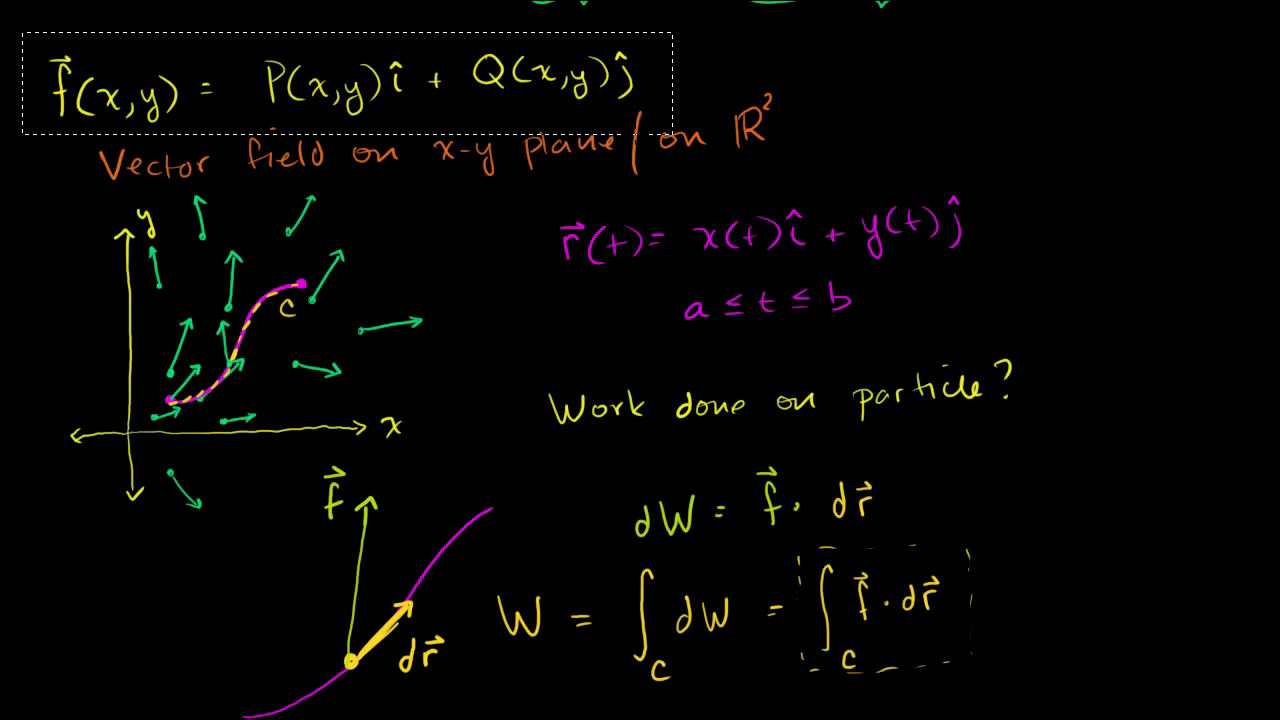 f⃗(x,y) = P(x,y)î + Q(x,y)ĵ
Vector field on x-y plane/on ℝ²
y
r⃗(t) = x(t)î + y(t)ĵ
c
a ≤ t ≤ b
Work done on particle?
x
f⃗
dW = f⃗ · dr⃗
W = ∫_C dW = ∫_C f⃗ · dr⃗
dr⃗